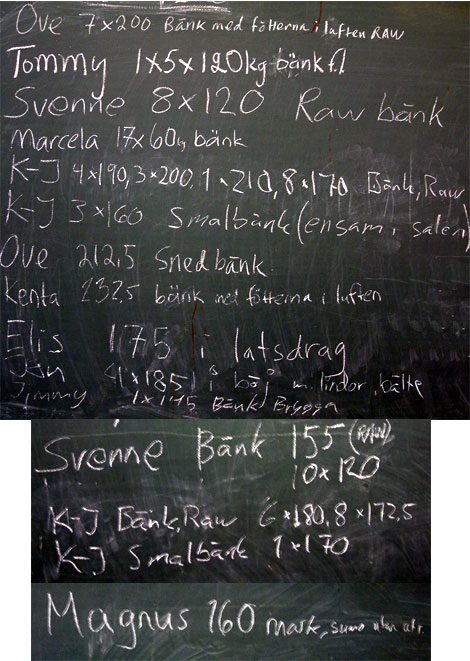 Ove 7x200 Bänk med fötterna i luften RAW
Tommy 1x5x120kg bänk f.l
Svenne 8x120 Raw bänk
Marcela 17x60kg bänk
K-J 4x190, 3x200, 1x210, 8x170 Bänk, Raw
K-J 3x160 Smalbänk (ensam i salen)
Ove 212,5 Snedbänk
Kenta 232,5 bänk med fötterna i luften
Elis 175 i latsdrag
Jan 4x185 i böj m. lindor, bälte
Jimmy Bänk Brygga
Svenne Bänk 155 (RAW)
10x120
K-J Bänk, Raw 6x180, 8x172,5
K-J Smalbänk 1x170
Magnus 160 mark, sumo utan utr.